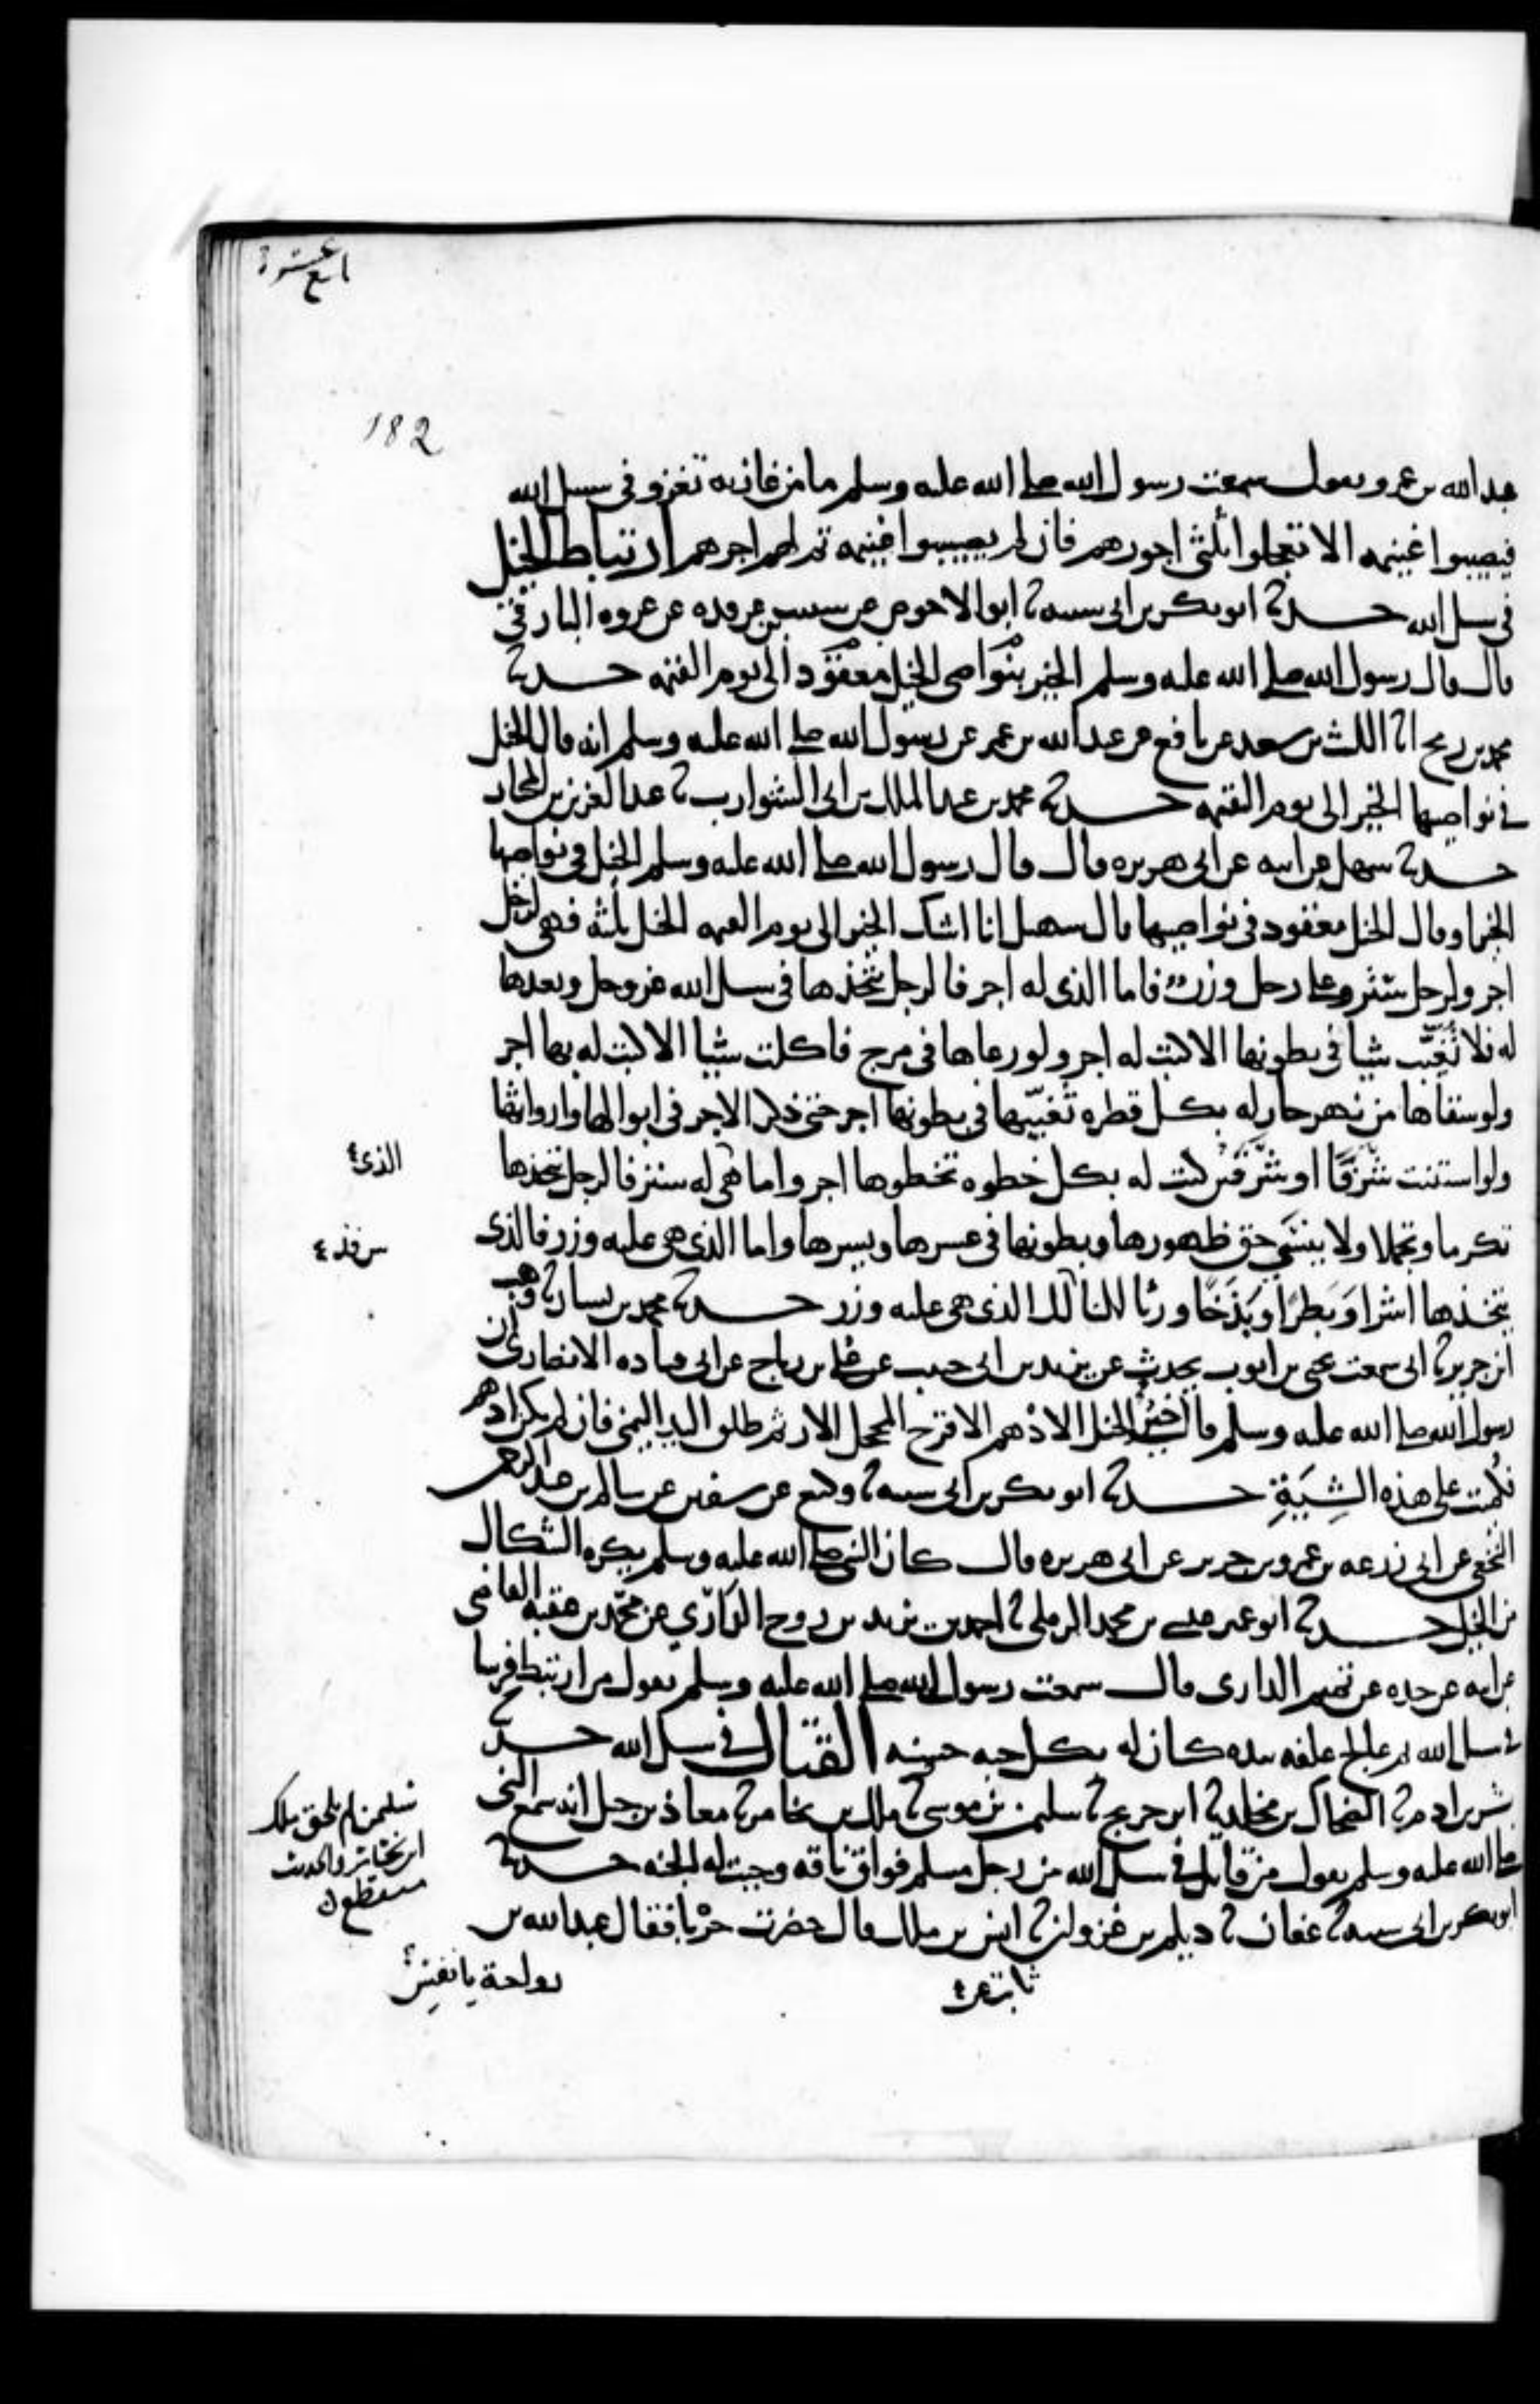 رابع عشرة
182
عبد الله بن عمرو يقول سمعت رسول الله صلى الله عليه وسلم ما من غازية تغزو في سبيل الله
فيصيبوا غنيمه الا تعجلوا ثلثي اجورهم فان لم يصيبوا غنيمه تم لهم اجرهم ارتباط الخيل
في سبيل الله حدثنا ابو بكر بن ابي شيبه ثنا ابو الاحوص عن شبيب بن غرقده عن عروه البارقي
قال قال رسول الله صلى الله عليه وسلم الخير بنواصي الخيل معقود الى يوم القيمه حدثنا
محمد بن رمح انا الليث بن سعد عن نافع عن عبد الله بن عمر عن رسول الله صلى الله عليه وسلم انه قال الخيل
في نواصيها الخير الى يوم القيمه حدثنا محمد بن عبد الملك بن ابي الشوارب ثنا عبد العزيز بن المختار
حدثنا سهيل عن ابيه عن ابي هريره قال قال رسول الله صلى الله عليه وسلم الخيل في نواصيها
الخير او قال الخيل معقود في نواصيها قال سهيل انا اشك الخير الى يوم القيمه الخيل ثلثه فهي لرجل
اجر ولرجل ستر وعلى رجل وزر فاما الذي له اجر فالرجل يتخذها في سبيل الله عز وجل ويعدها
له فلا تغيب شيا في بطونها الا كتبت له اجر ولو رعاها في مرج فاكلت شيا الا كتبت له بها اجر
ولو سقاها من نهر جار له بكل قطره تغيبها في بطونها اجر حتى ذكر الاجر في ابوالها واروائها
ولو استنت شرفا او شرفين كتب له بكل خطوه تخطوها اجر واما هي له ستر فالرجل يتخذها
الذي
تكرما وتجملا ولا ينسى حق ظهورها وبطونها في عسرها ويسرها واما الذي هي عليه وزر فالذي
يتخذها اشرا وبطرا وبذخا ورئا للناس فذلك الذي هي عليه وزر حدثنا محمد بن بشار ثنا وهب
ابن جرير ثنا ابي سمعت يحيى بن ايوب يحدث عن يزيد بن ابي حبيب عن علي بن رباح عن ابي قتاده الانصاري ان
رسول الله صلى الله عليه وسلم قال خير الخيل الادهم الاقرح المحجل الارثم طلق اليد اليمنى فان لم يكن ادهم
فكميت على هذه الشية حدثنا ابو بكر بن ابي شيبه ثنا وكيع عن سفين عن سالم بن عبد الرحمن
النخعي عن ابي زرعه بن عمرو بن جرير عن ابي هريره قال كان النبي صلى الله عليه وسلم يكره الشكال
من الخيل حدثنا ابو عمير عيسى بن محمد الرملي ثنا احمد بن يزيد بن روح الداري عن محمد بن عقبه القاضي
عن ابيه عن جده عن تميم الداري قال سمعت رسول الله صلى الله عليه وسلم يقول من ارتبط فرسا
في سبيل الله ثم عالج علفه بيده كان له بكل حبه حسنه القتال في سبيل الله حدثنا
بشر بن ادم ثنا الضحاك بن مخلد ثنا ابن جريج ثنا سليمن بن موسى ثنا ملك بن يخامر ثنا معاذ بن جبل انه سمع النبي
سليمن لم يلحق ملك
ابن يخامر والحديث
منقطع
صلى الله عليه وسلم يقول من قاتل في سبيل الله من رجل مسلم فواق ناقه وجبت له الجنه حدثنا
ابو بكر بن ابي شيبه ثنا عفان ثنا ديلم بن غزوان ثنا انس بن ملك قال حضرت حربا فقال عبد الله بن
ثابت عن
رواحة يا نفس